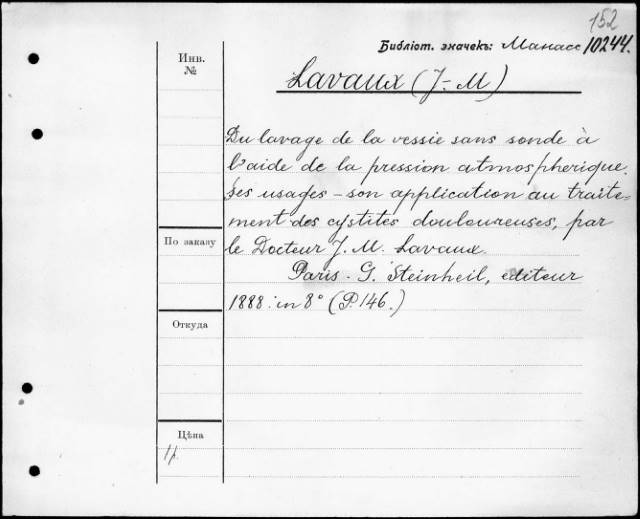 152
Библіот. значекъ: Манасс 10244.
Инв. №
Lavaux (J-M)
Du lavage de la vessie sans sonde à
l'aide de la pression atmospherique.
Ses usages – son application au traite-
ment des cystites douloureuses, par
По заказу
le Docteur J. M. Lavaux.
Paris. G. Steinheil, editeur
1888. in 8° (P. 146.)
Откуда
Цѣна
1р.